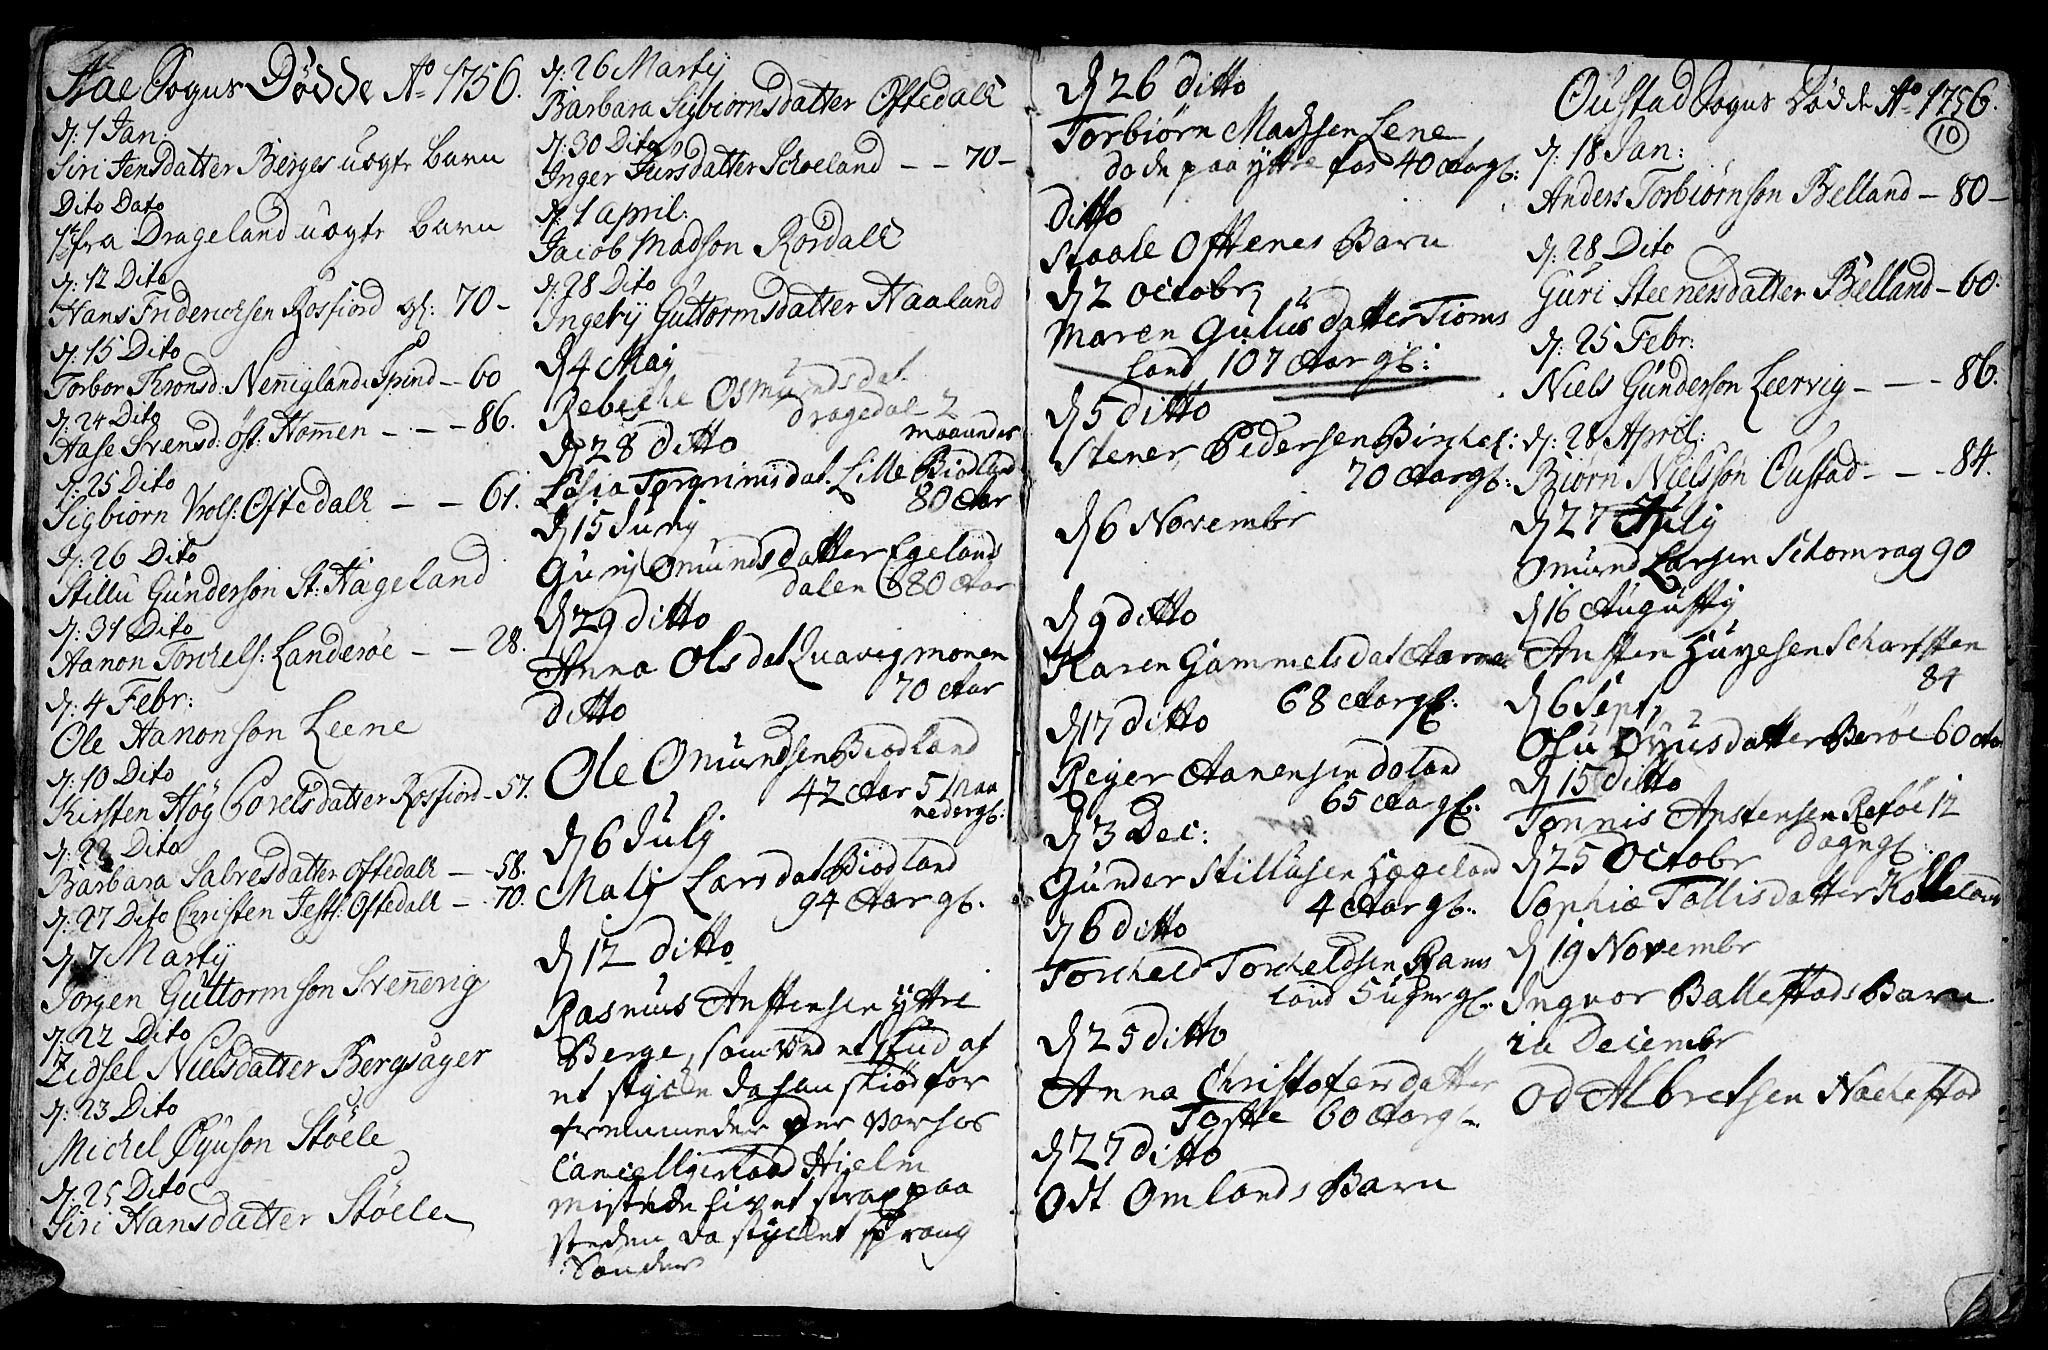 Aae Sogns Dödde Aº 1756.
d: 1 Jan:
Siri Jensdatter Berges uægte barn
Dito Dato
fra Drageland uægte barn
d: 12 Dito
Hans Friderichsen Rosfiord gl: 70 -
d: 15 Dito
Torbor Thronsd: Nennigland i Spind - 60
d: 24 Dito
Aase Svensd: Öst: Homen - - - 86.
d: 25 Dito
Sigbiörn Oftedall - - 61.
d: 26 Dito
Stillu Gunderson St: Hageland
d: 31 Dito
Aanon Torchels: Landeröe - - 28.
d: 4 Febr:
Ole Aanonson Leene
d: 10 Dito
Kirsten Höy Rosfiord - 57.
d: 22 Dito
Barbara Salvesdatter Oftedall - 58.
d: 27 Dito Christen Oftedall - 70.
d: 7 Martij
Jörgen Guttormson Svennevig
d: 22 Dito
Zidsel Nielsdatter Bergsager
d: 23 Dito
Michel Öyuson Stöele
d: 25 Dito
Siri Hansdatter Stöele
d: 26 Martij
Barbara Sigbiörnsdatter Oftedall
d: 30 Dito
Inger Schoeland - - 70 -
d: 1 april:
Jacob Madson Rosdall
d: 28 Dito
Ingebÿ Guttormsdatter Naaland
d 4 Maij
Rebeche Osmundsdat.
dragedal 2
maaneder
d 28 ditto
Torgrimsdat. Lille Biodland
80 Aar
d 15 Junij
Gurij Omundsdatter Egelands
dalen 80 Aar
d 29 ditto
Anna Olsdat Quavigmonen
70 Aar
ditto
Ole Omundsen Biodland
42 Aar 5 Maa
neder gl:
d 6 Julj
Malj Larsdat Biodland
94 Aar gl.
d 12 ditto
Rasmus Anstensen Yttre
Berge, som ved et skud af
et stycke da han skiöd for
fremmede der var hos
Cancelliraad Hielm
mistede livet strax paa
steden da stycket sprang
Sönder
d 26 ditto
Torbiörn Madsen Lene
döde paa yttre fos 40 Aar gl:
ditto
Staale Oftenes Barn
d 2 octobr
Maren Gulusdatter Tioms
land 107 Aar gl:
d 5 ditto
Stener Pedersen Birchel:
70 Aar gl:
d 6 Novembr
d 9 ditto
Karen Gammelsdat Aarnes
68 Aar gl:
d 17 ditto
Reyer Aanensen daland
65 Aar gl:
d 3 Dec:
Gunder Stillusen Hægeland
4 Aar gl:
d 6 ditto
Torcheld Torcheldsen Rams
land 5 uger gl:
d 25 ditto
Anna Christofersdatter
Tofte 60 Aar gl:
d 27 ditto
Odt Omlands Barn
Oustad Sogns Dödde Aº 1756.
10
d: 18 Jan:
Anders Torbiörnson Belland - 80 -
d: 28 Dito
Guri Steenersdatter Belland - 60:
d: 25 Febr:
Niels Gunderson Leervig - - - 86.
d: 28 April:
Biörn Nielsson Oustad - - 84.
d 27 July
Omund Larsen Schomrag 90
d 16 Augustij
Ansten Huyesen Scharsten
84
d 6 Sept
Osu Öyusdatter Beröe 60 Aar
d 15 ditto
Tönnis Anstensen Reföe 12
dage gl:
d 25 Octobr
Sophie Tallisdatter Kolleland
d 19 Novembr
Ingvor Ballestads Barn
in Decembr
Od Albretsen Nachestad